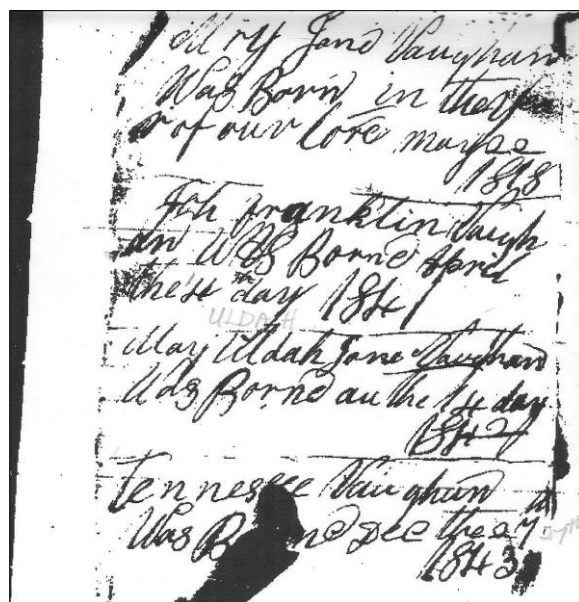 Jane Vaughan
Was Born in the
of our Lore may
1818
franklin Vaugh
an Was Borne April
the day 184
ULDAH
May Uldah Jane Vaughan
Was Borne au the 14 day
184
Tennessee Vaughun
Was B ne Dec the 27
1843